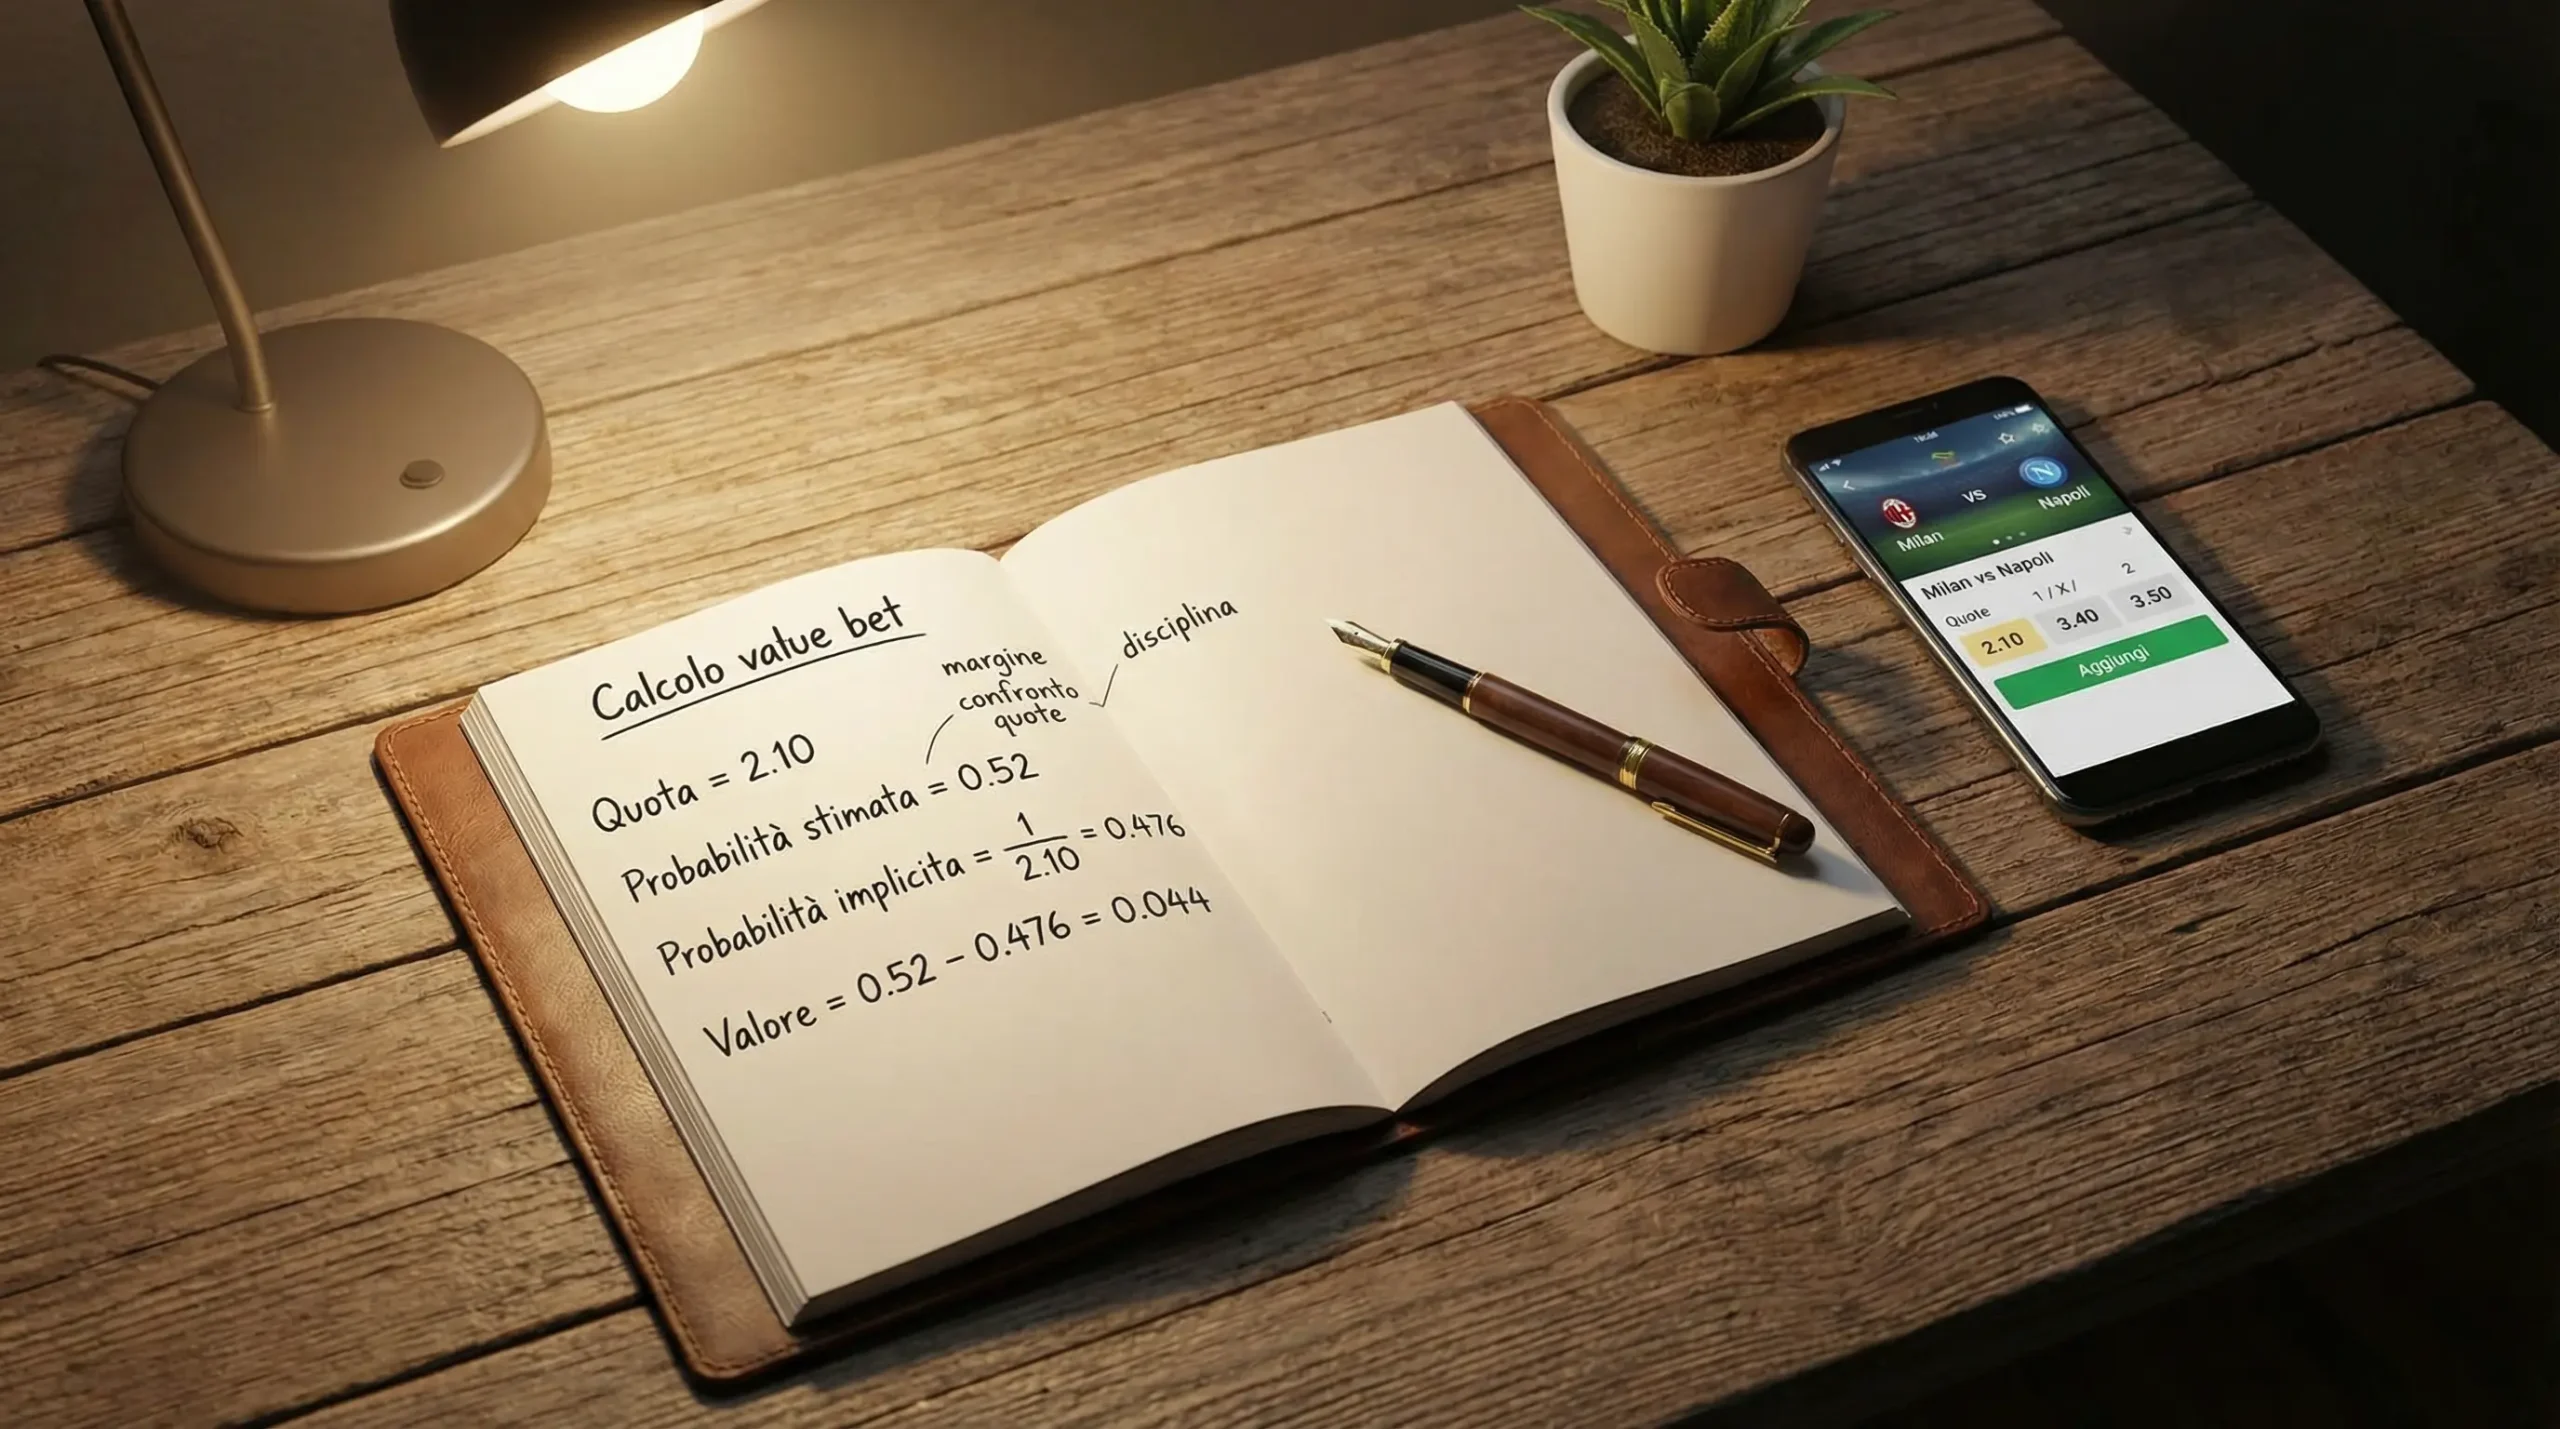 Calcolo value bet
margine
confronto
quote
disciplina
Quota = 2.10
Probabilità stimata = 0.52
Probabilità implicita = 1/2.10 = 0.476
Valore = 0.52 - 0.476 = 0.044
Milan vs Napoli
Milan vs Napoli
Quote 1 / X / 2
2.10 3.40 3.50
Aggiungi